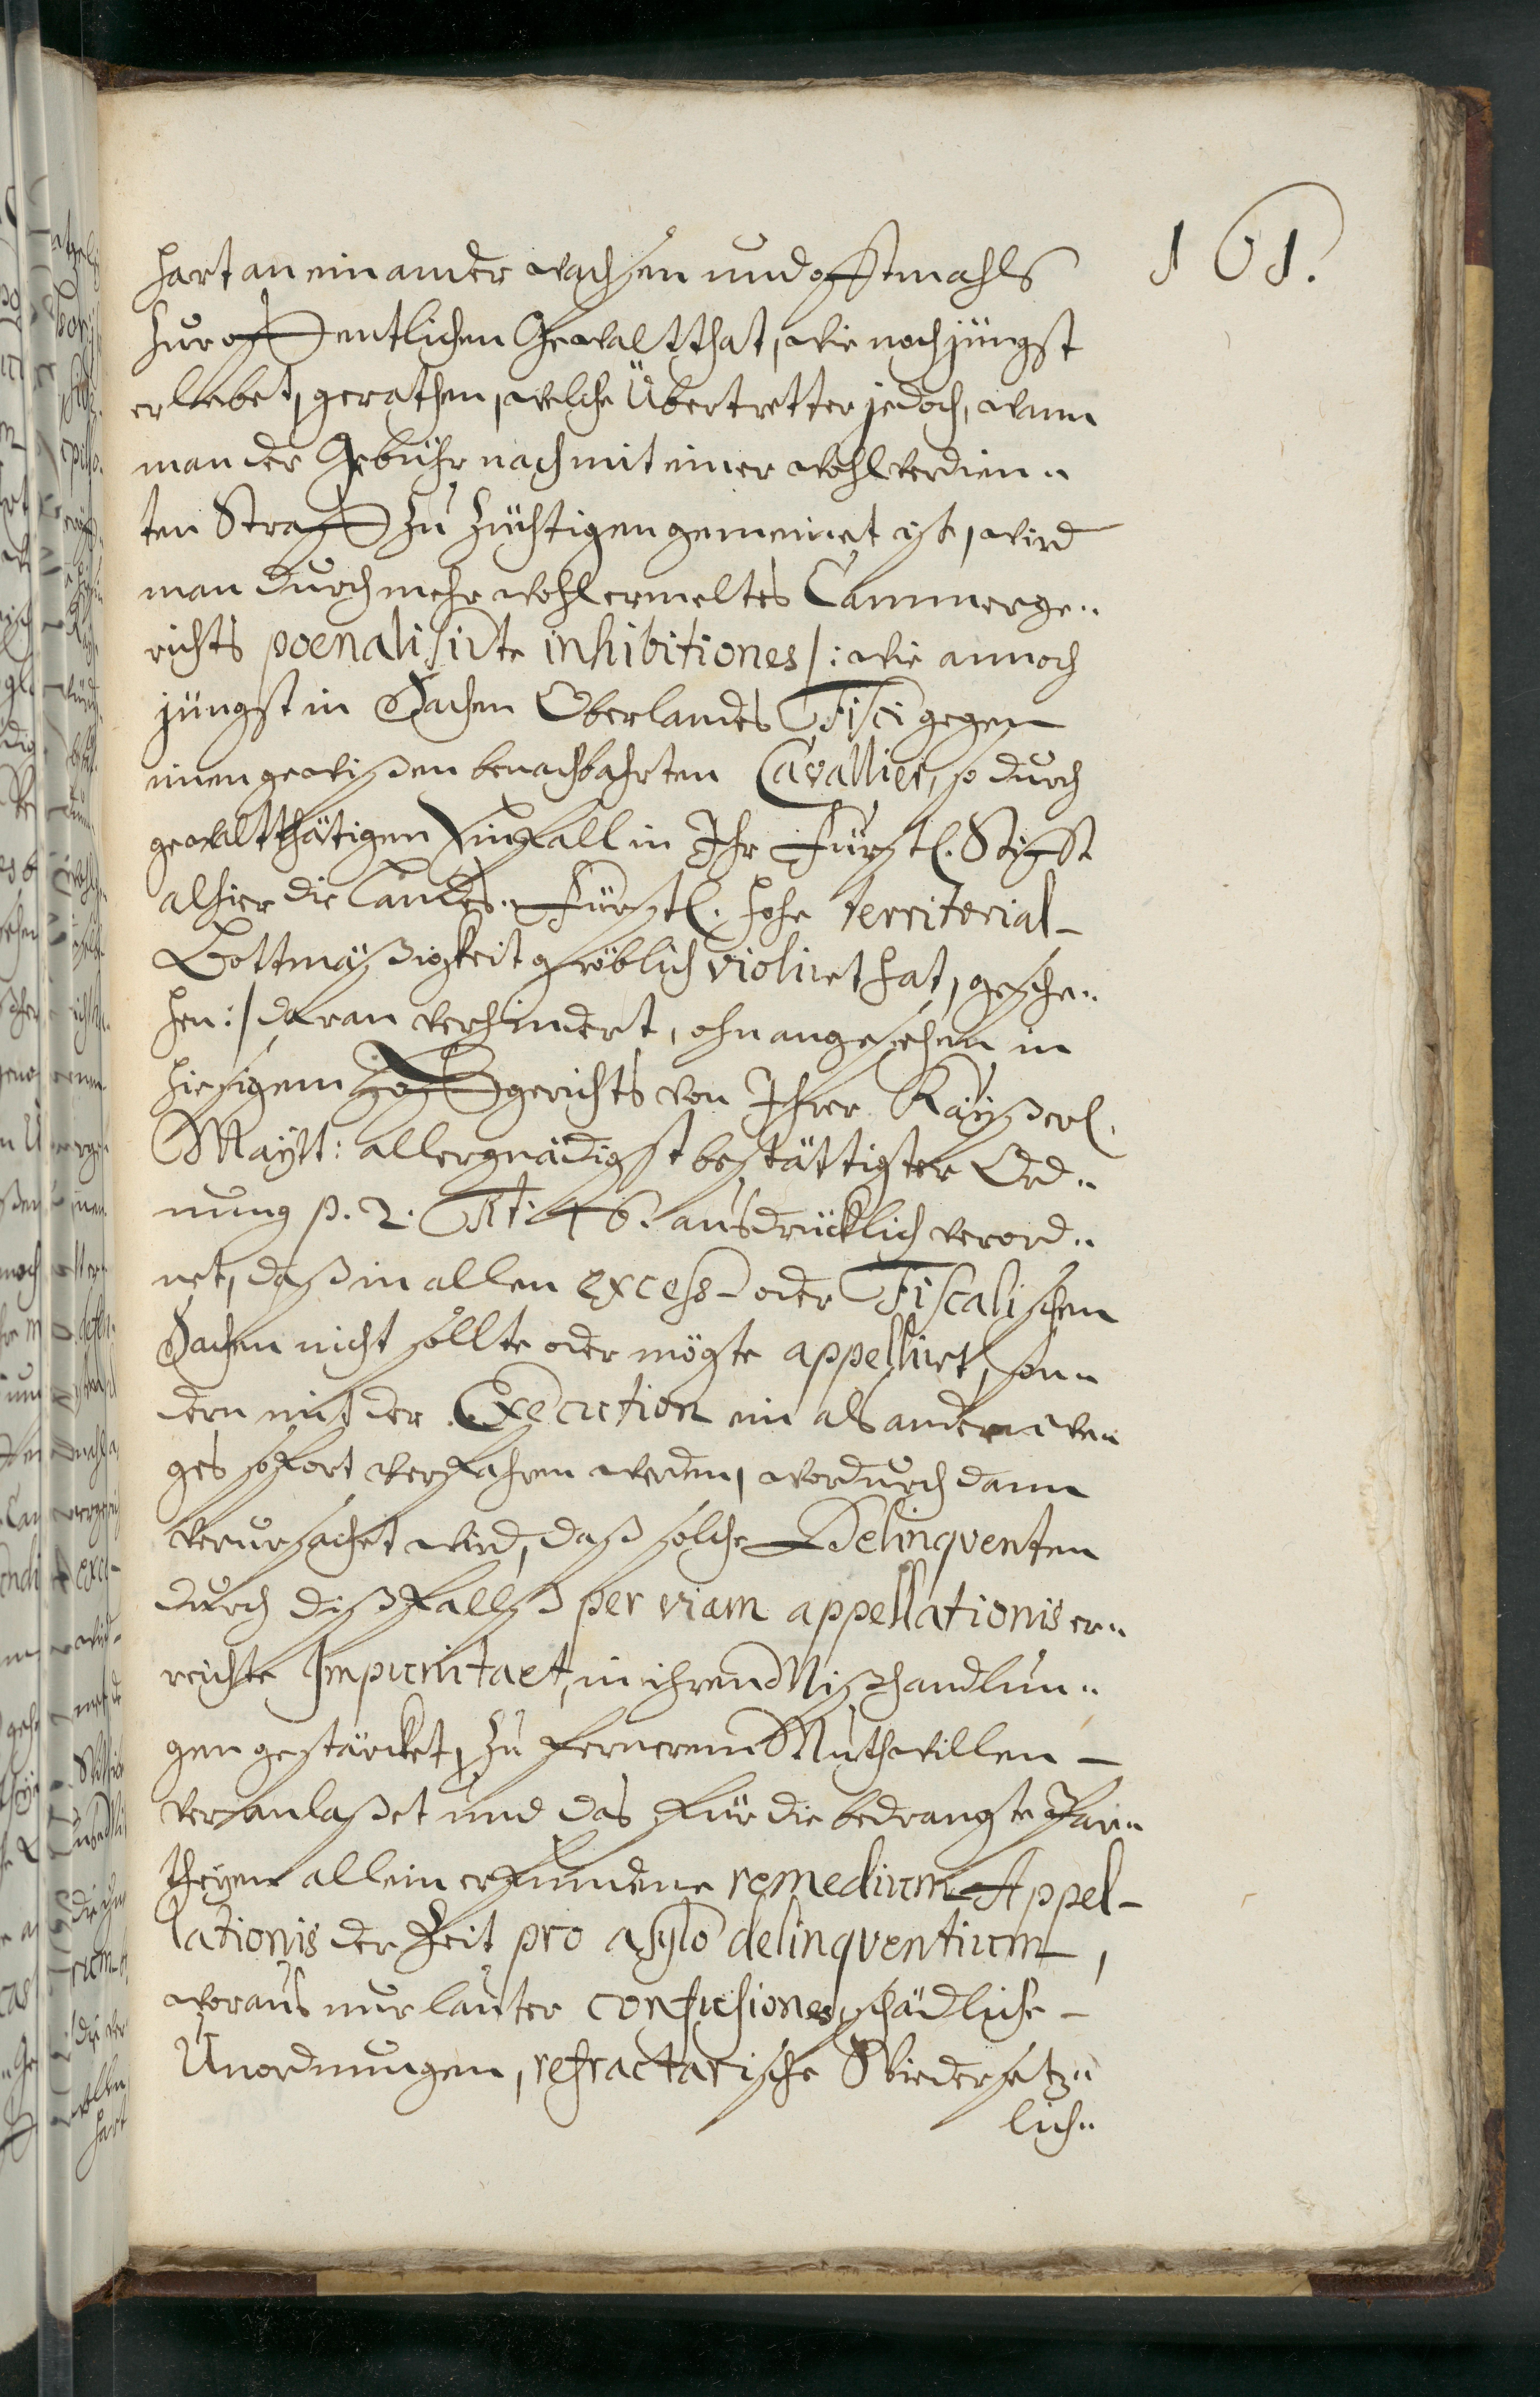 101.
hart an einander wachsen und offtmahls
zur offentlichen Gewaltthat, wie noch jüngst
erlebet, gerathen, welche Übertretter jedoch, wann
man der Gebühr nach mit einer wohlverdien„
ten Straff zu züchtigen gemeinet ist, wird
man durch mehr wohlermeltes Cammerge„
richts poenalisirte inhibitiones /: wie annoch
jüngst in Sachen Oberlandes Fisci gegen
einen gewißen benachbahrten Cavallier, so durch
gewaltthätigen Einfall in Ihr Fürstl. Stifft
alhier die Landes„Fürstl. hohe territorial-
Bottmäßigkeit gröblich violiret hat, gesche„
hen :/ daran verhindert, ohnangesehen in
hiesigem Hoffgerichts von Ihrer Kayßerl.
Maytt: allergnädigst bestättigter Ord„
nung p. 2. Tit: 46. ausdrücklich verord„
net, daß in allen excess- oder Fiscalischen
Sachen nicht sollte oder mögte appelliret, son„
dern mit der Execution ein als andern we„
ges sofort verfahren werden, wordurch dann
verursachet wird, daß solche Delinqventen
durch dißfallß per viam appellationis er„
reichte Impunitaet, in ihren Mißhandlun„
gen gestärcket, zu fernerem Muthwillen -
veranlaßet und das für die bedrangte Par„
theyen allein erfundene remedium Appel-
lationis der Zeit pro asylo delinqventium,
woraus nur lauter confusiones, schädliche -
Unordnungen, refractarische Wiedersetz„
lich„